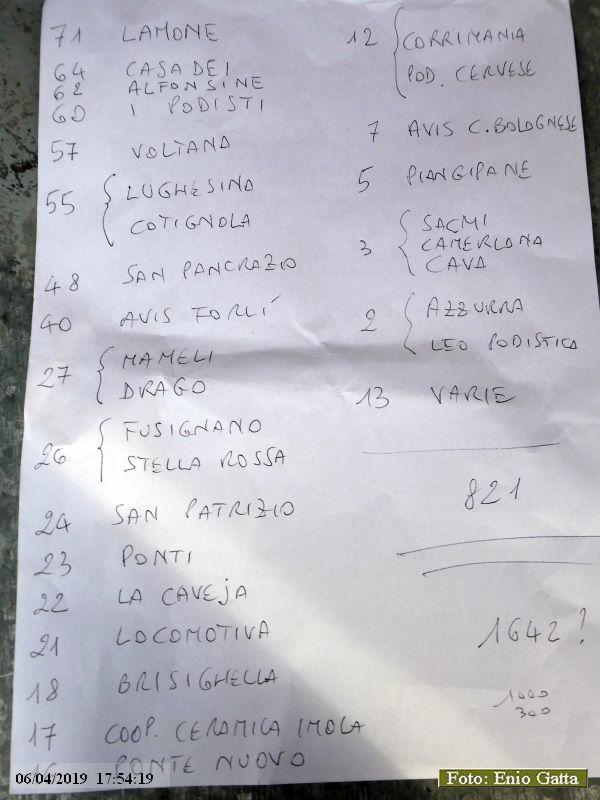 71 LAMONE
64 CASADEI
62 ALFONSINE
60 I PODISTI
57 VOLTANA
55 { LUGHESINA
COTIGNOLA
48 SAN PANCRAZIO
40 AVIS FORLÍ
27 { MAMELI
DRAGO
26 { FUSIGNANO
STELLA ROSSA
24 SAN PATRIZIO
23 PONTI
22 LA CAVEJA
21 LOCOMOTIVA
18 BRISIGHELLA
17 COOP. CERAMICA IMOLA
16 PONTE NUOVO
12 { CORRIMANIA
POD. CERVESE
7 AVIS C. BOLOGNESE
5 PIANGIPANE
3 { SACMI
CAMERLONA
CAVA
2 { AZZURRA
LEO PODISTICA
13 VARIE
821
1642?
1000
300
06/04/2019 17:54:19
Foto: Enio Gatta